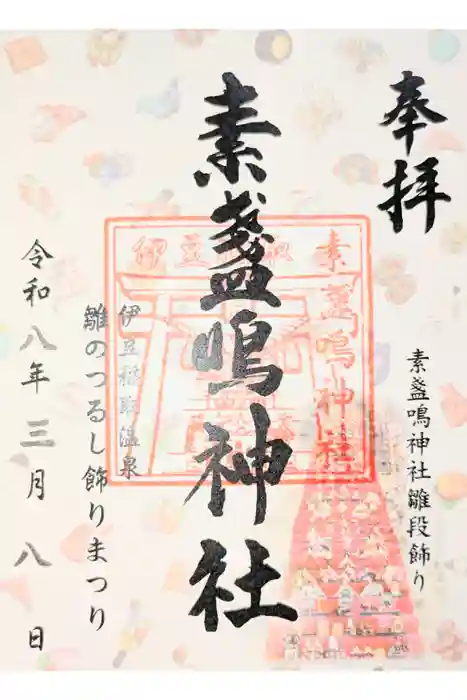 奉拝
素盞鳴神社雛段飾り
素盞鳴神社
伊豆稲取
素盞鳴神社
伊豆稲取温泉
雛のつるし飾りまつり
令和八年三月八日